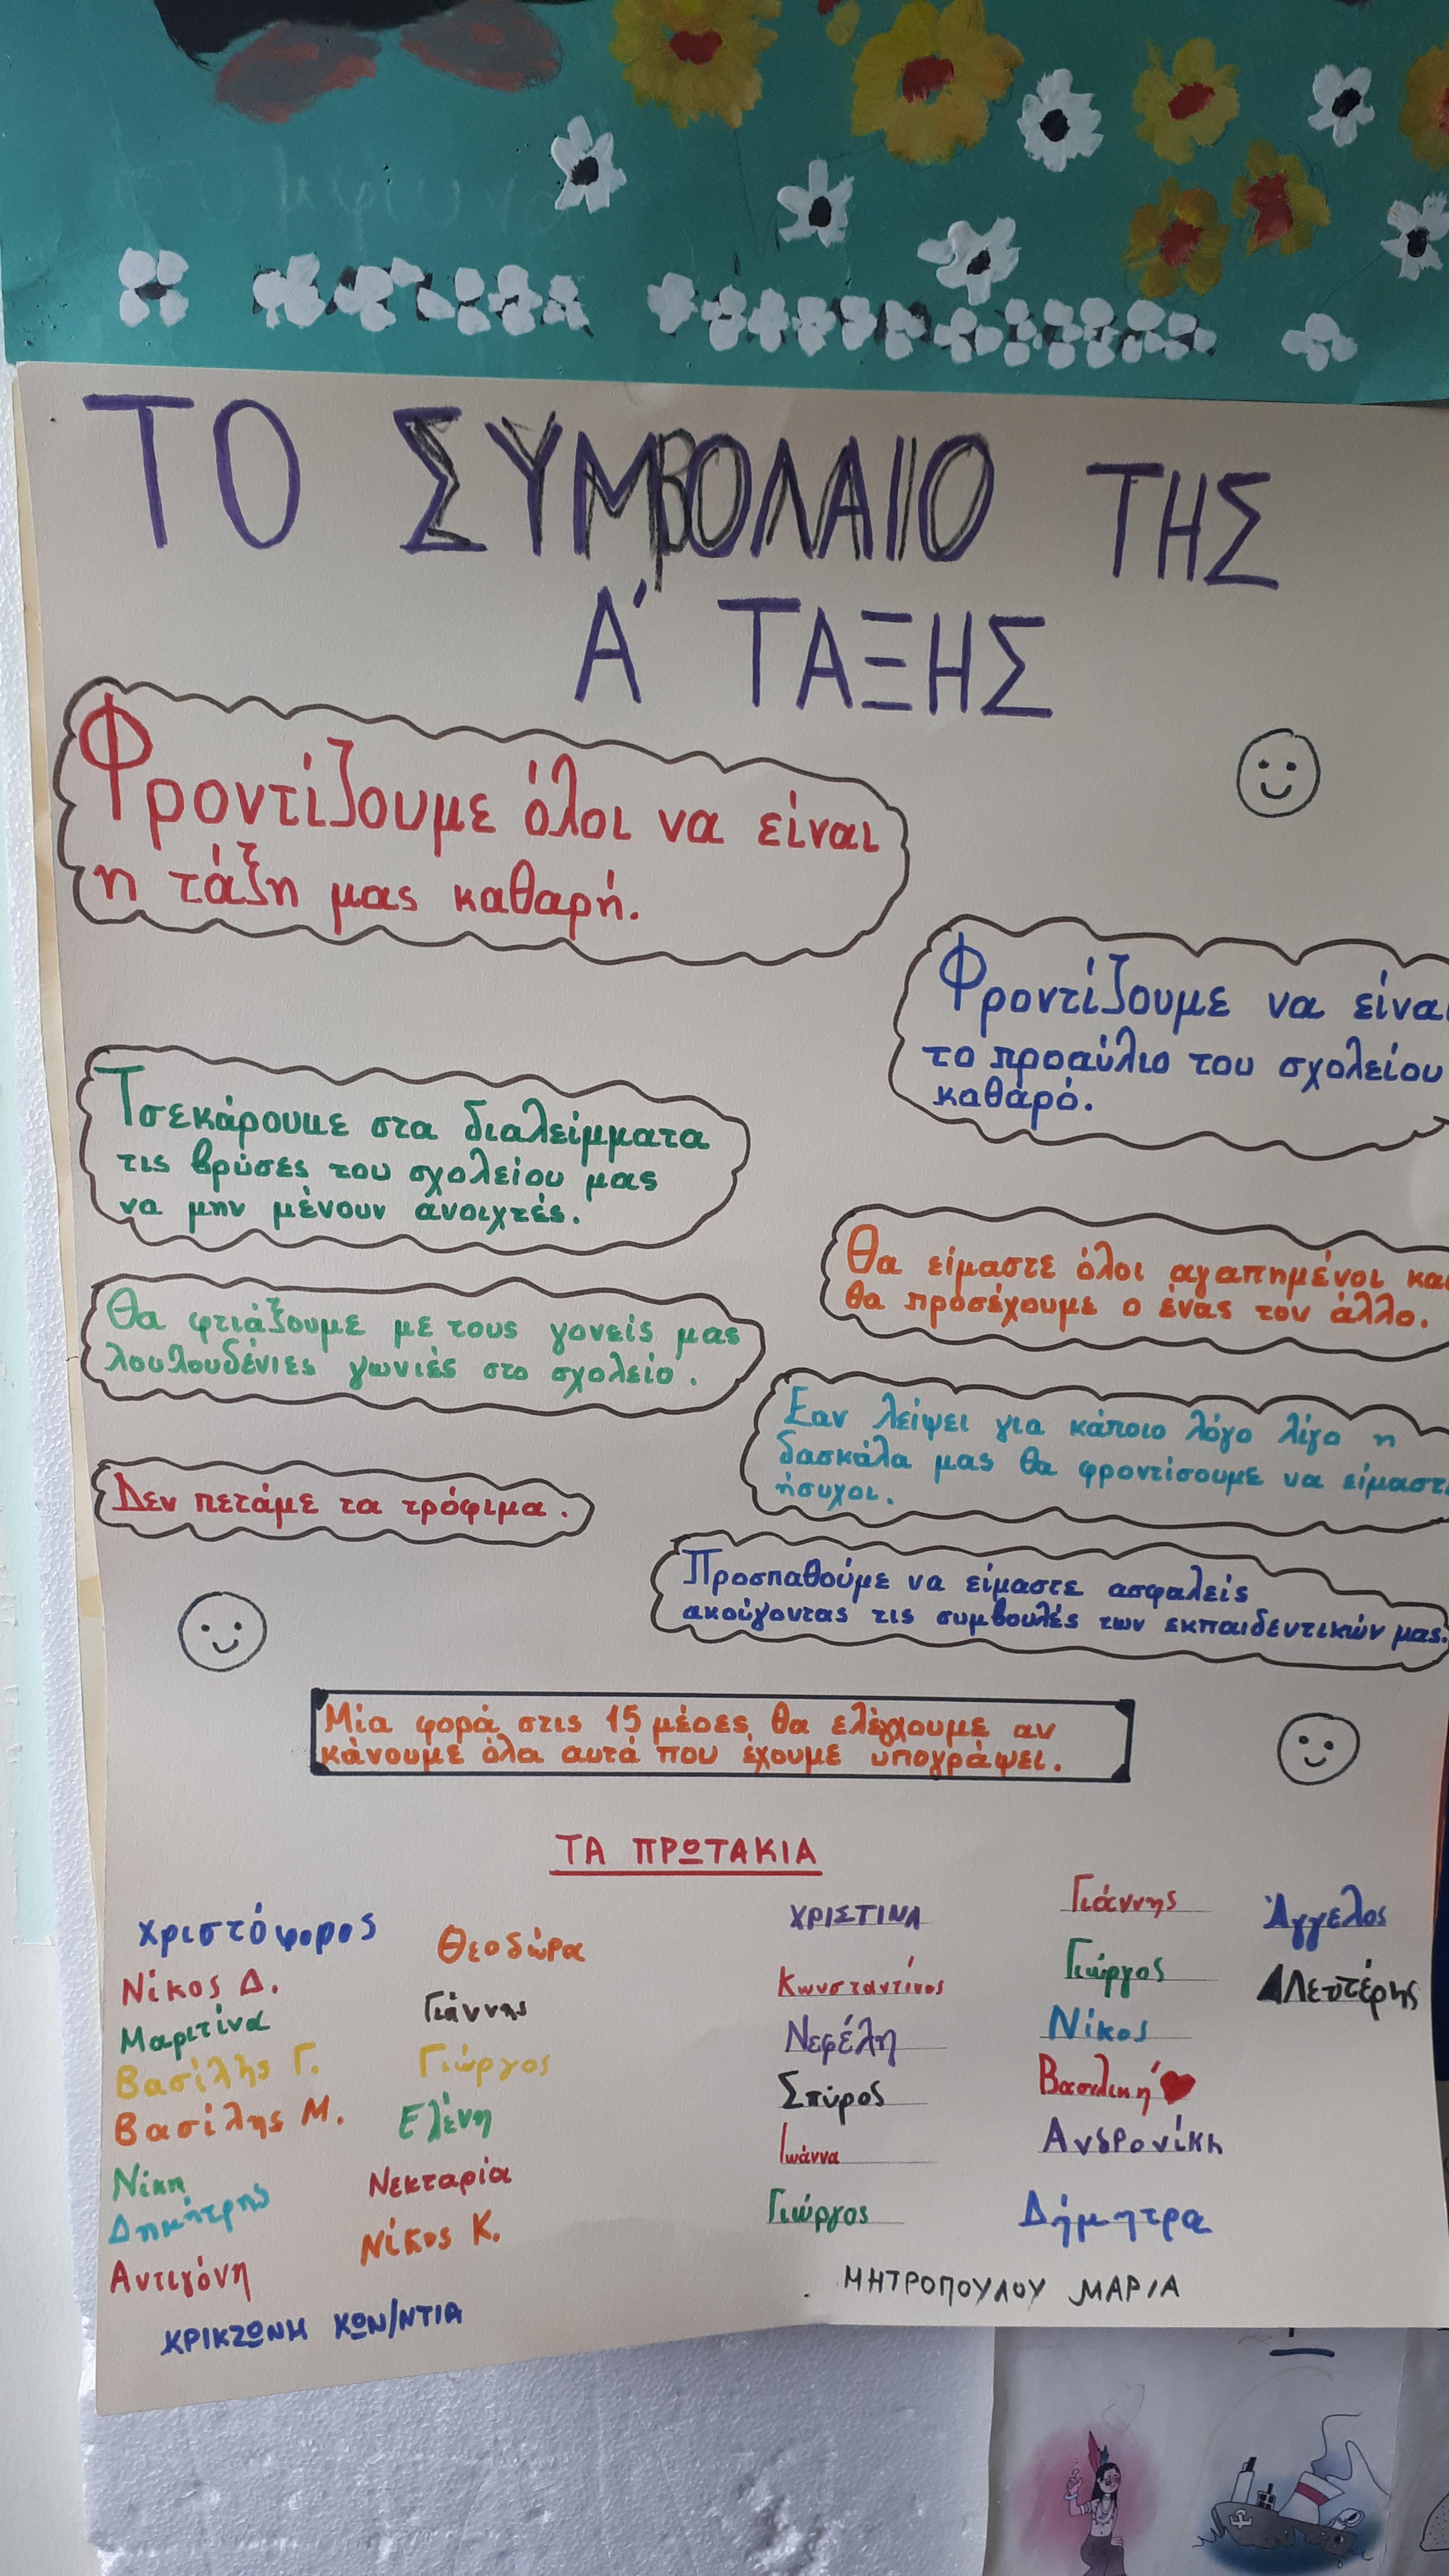 ΤΟ ΣΥΜΒΟΛΑΙΟ ΤΗΣ
Α΄ ΤΑΞΗΣ
Φροντίζουμε όλοι να είναι
η τάξη μας καθαρή.
Φροντίζουμε να είναι
το προαύλιο του σχολείου
καθαρό.
Τσεκάρουμε στα διαλείμματα
τις βρύσες του σχολείου μας
να μην μένουν ανοιχτές.
Θα είμαστε όλοι αγαπημένοι και
θα προσέχουμε ο ένας τον άλλο.
Θα φτιάξουμε με τους γονείς μας
λουλουδένιες γωνιές στο σχολείο.
Εαν λείψει για κάποιο λόγο λίγο η
δασκάλα μας θα φροντίσουμε να είμαστε
ήσυχοι.
Δεν πετάμε τα τρόφιμα.
Προσπαθούμε να είμαστε ασφαλείς
ακούγοντας τις συμβουλές των εκπαιδευτικών μας.
Μία φορά στις 15 μέρες θα ελέγχουμε αν
κάνουμε όλα αυτά που έχουμε υπογράψει.
ΤΑ ΠΡΩΤΑΚΙΑ
Χριστόφορος
Νίκος Δ.
Μαριτίνα
Βασίλης Γ.
Βασίλης Μ.
Νίκη
Δημήτρης
Αντιγόνη
Θεοδώρα
Γιάννης
Γιώργος
Ελένη
Νεκταρία
Νίκος Κ.
ΚΡΙΚΖΩΝΗ ΚΩΝ/ΝΤΙΑ
ΧΡΙΣΤΙΝΑ
Κωνσταντίνος
Νεφέλη
Σπύρος
Ιωάννα
Γιώργος
Γιάννης
Γιώργος
Νίκος
Βασιλική
Ανδρονίκη
Δήμητρα
Άγγελος
Λευτέρης
ΜΗΤΡΟΠΟΥΛΟΥ ΜΑΡΙΑ